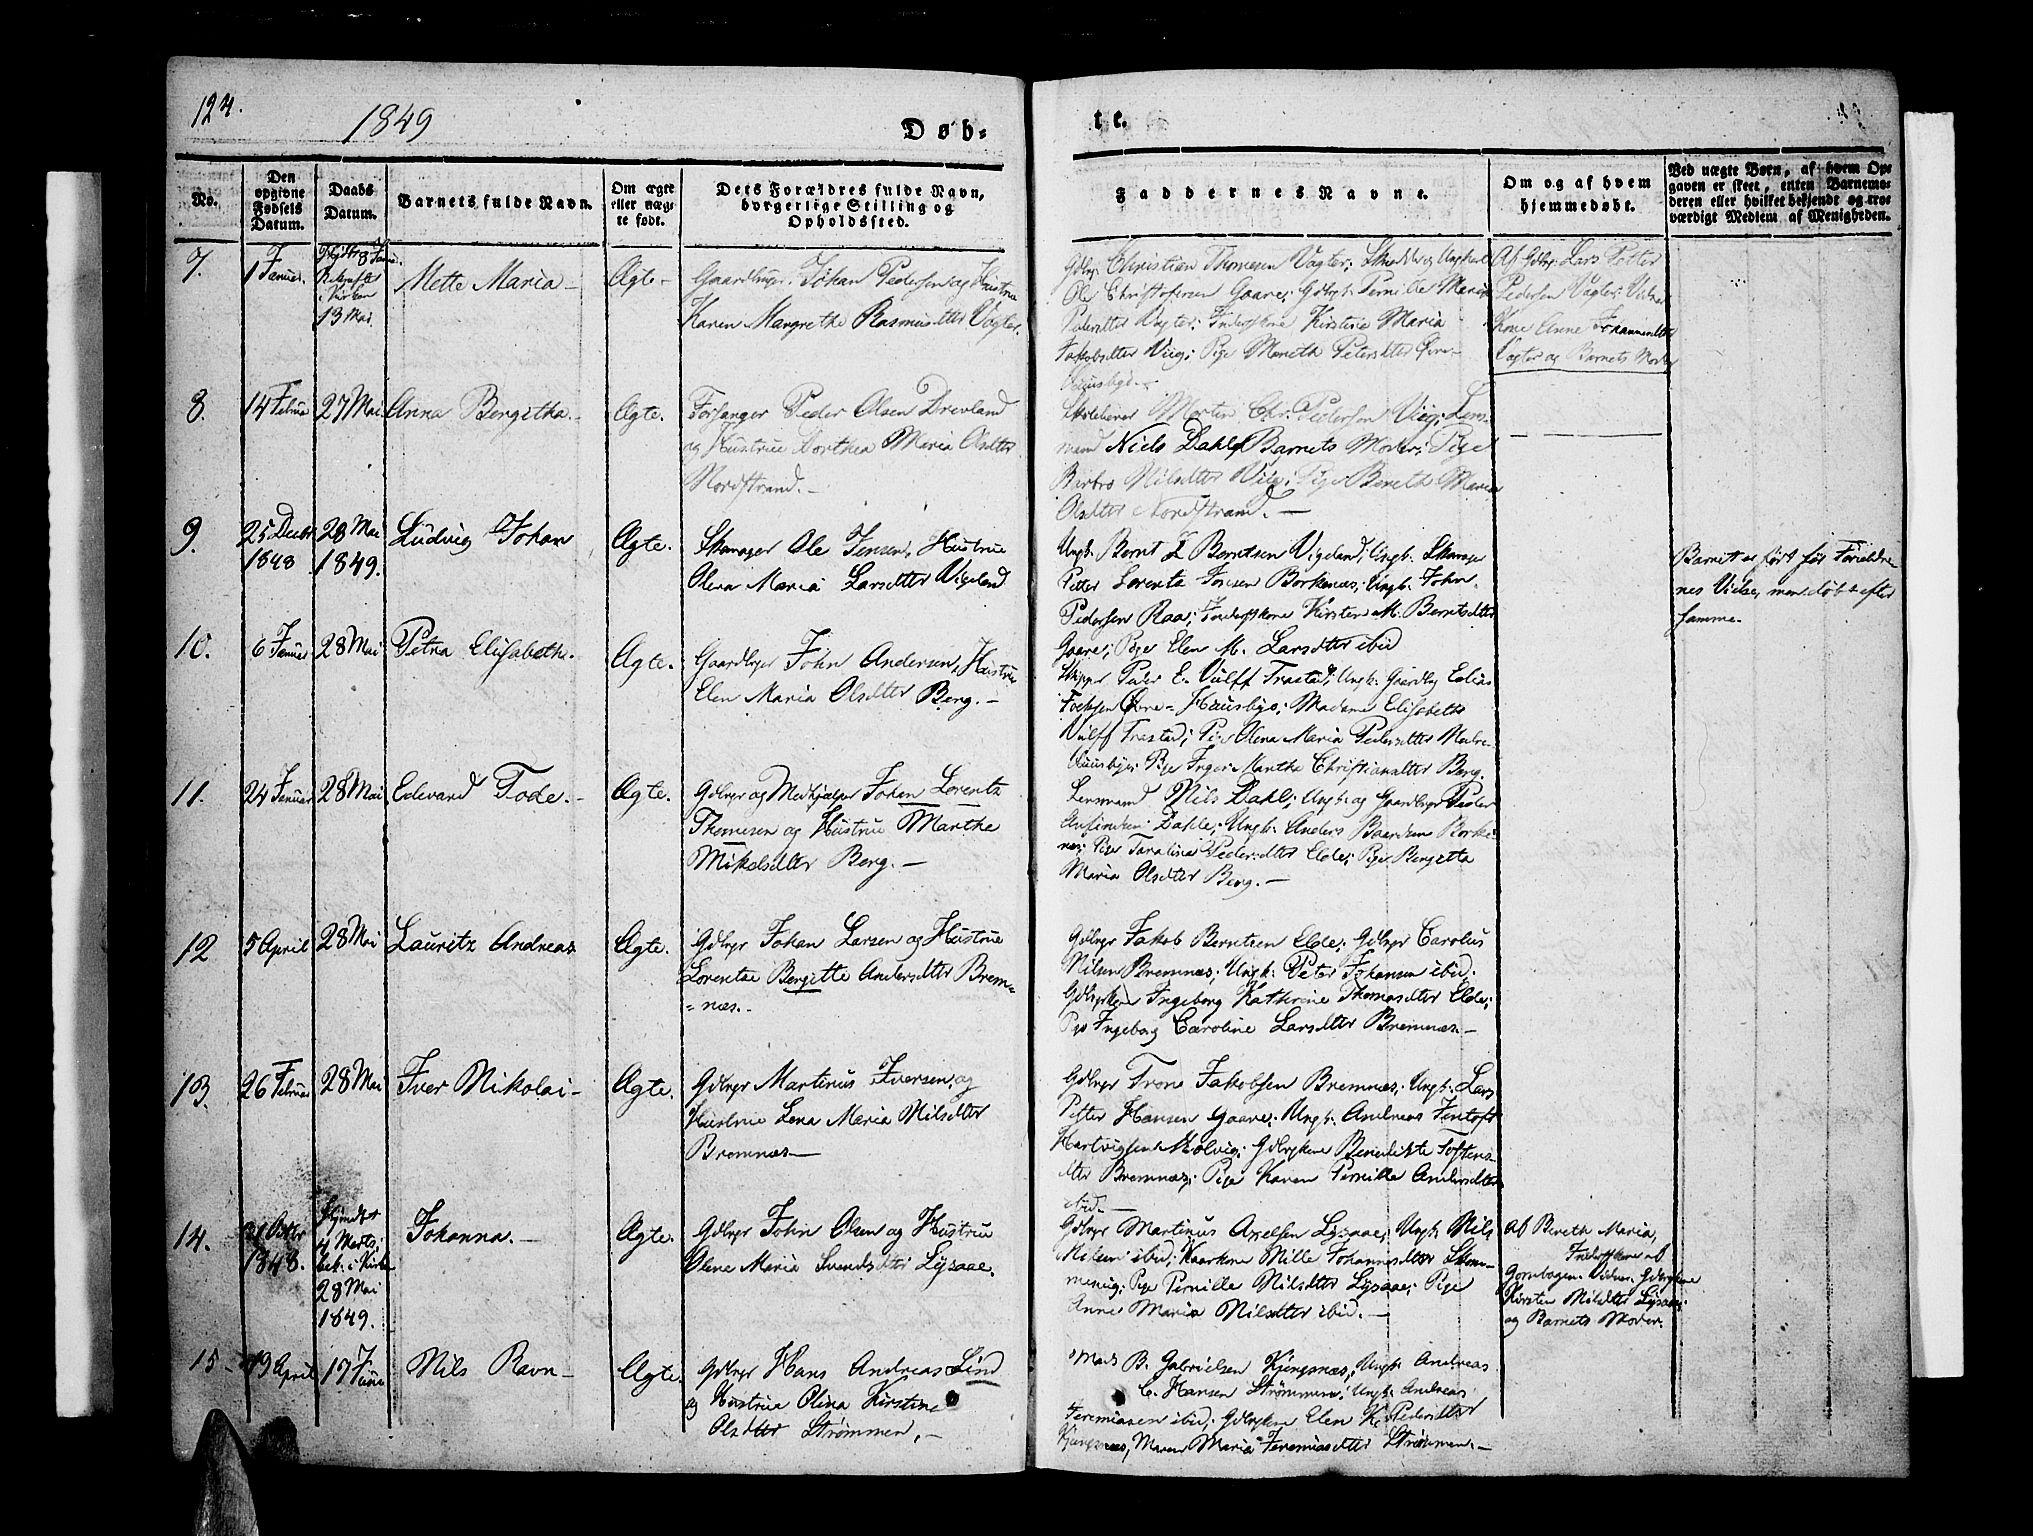 124.
1849
Døb-
te.
No.
Den
opgivne
Fødsels
Datum.
Daabs
Datum.
Barnets fulde Navn.
Om ægte
eller uæg-
te født.
Dets Forældres fulde Navn,
borgerlige Stilling og
Opholdssted.
Faddernes Navne.
Om og af hvem
hjemmedøbt.
Ved uægte Børn, af hvem Op-
gaven er skeet, enten Barnemo-
deren eller hvilket bekjendt og tro-
værdigt Medlem af Menigheden.
7.
1 Januar.
8 Janu.
i Kirken
13 Mai.
Mette Maria -
Ægte -
Gaardbrger. Johan Pedersen og Hustrue
Karen Margrethe Rasmusdtter Vagter.
Gdbrg. Christian Thomesen Vagter;
Ole Christofersen Gaare; Gdbrgk. Pernille Maria
Pedersdtter Vagter; Inderstkone Kirstine Maria
Jakobsdtter Viig; Pige Mereth Petersdtter Øvre-
Huusbye.-
Af Gdbrg. Lars Petter
Pedersen Vagter; Vidner
Kone Anne Johannesdtter
Vagter og Barnets Moder
8.
14 Februar
27 Mai
Anna Bergitha.-
Ægte.
Forsanger Peder Olsen Drevland
og Hustrue Dorthea Maria Olsdtter
Nordstrand.-
Skolelærer Morten Chr. Pedersen Viig; Lens-
mand Niels Dahl; Barnets Moder; Pige
Barbro Nilsdtter Viig; Pige Bereth Maria
Olsdtter Nordstrand.-
9.
25 Decbr
1848
28 Mai
1849.
Ludvig Johan
Ægte.
Skomager Ole Jensen, Hustrue
Olena Maria Larsdtter Vigeland
Ungk. Bernt L Berntsen Vigeland; Ungk. Skomager
Petter Lorentz Jensen Borkenæs; Ungk. John
Pedersen Raa; Inderstkone Kirsten M. Berntsdtter
Gaare; Pige Elen M. Larsdtter ibid
Barnet er født før Forældre-
nes Vielse, men døbt efter
samme.
10.
6 Januar
28 Mai
Petra Elisabethe.
Ægte.
Gaardbrger John Andersen, Hustrue
Elen Maria Olsdtter Berg.-
Skipper Peder E. Vulff Trastad; Ungk. Gaardbrg Edias
Øvre-Huusbye; Madame Elisabeth
Vulff Trastad; Pige Olena Maria Pedersdtter Nedre-
Huusbye; Pige Inger Marthe Christiansdtter Berg.
11.
24 Januar
28 Mai
Edevard Tode.-
Ægte.
Gdbrger og Medhjælper Johan Lorentz
Thomesen og Hustrue Marthe
Mikelsdtter Berg.-
Lensmand Nils Dahl; Ungk. og Gaardbrger Peder
Dahle; Ungk. Anders Borke-
næs; Pige Pedersdtter Elde; Pige Bergitte
Maria Olsdtter Berg.-
12
5 April
28 Mai
Lauritz Andreas
Ægte.
Gdbrger Johan Larsen og Hustrue
Lorentse Bergitte Andersdtter Brem-
=næs.-
Gdbrger Jakob Berntsen Elde; Gdbrger Carolus
Nilsen Bremnæs; Ungk. Peter Johansen ibid;
Gdbrgkone Ingeborg Kathrine Thomasdtter Elde;
Pige Ingeborg Caroline Larsdtter Bremnæs.-
13.
26 Februar
28 Mai
Iver Nikolai -
Ægte.
Gdbrger Martinus Iversen, og
Hustrue Lena Maria Nilsdtter
Bremnæs -
Gdbrger Trone Jakobsen Bremnæs; Ungk. Lars
Petter Hansen Gaare; Ungk. Andreas Jentoft
Hartvigsen Molvig; Gdbrgkone Benedikte Toftens-
dtter Bremnæs; Pige Karen Pernille Andersdtter
ibid.-
14.
31 Octbr
1848.
4 Marts
bek. i Kirken
28 Mai
1849.
Johanna.-
Ægte.
Gdbrger John Olsen og Hustrue
Olene Maria Svendsdtter Lysaae.
Gdbrger Martinus Axelsen Lysaae; Ungk. Nils
Nilsen ibid; Kaarkone Mille Johannesdtter Skim-
menvig; Pige Pernille Nilsdtter Lysaae; Pige
Anne Maria Nilsdtter ibid.-
Af Bereth Maria,
Inderstkone af
Vidner Gdbrgkone
Kirsten Nilsdtter Lysaae;
og Barnets Moder.
15
19 April
17 Juni
Nils Ravn -
Ægte.
Gdbrger Hans Andreas Lind
og Hustrue Olina Kirstine
Olsdtter Strømmen.-
Mads B. Gabrielsen Kjengsnæs; Ungk. Andreas
C. Hansen Strømmen; Ungk. Andreas
Jeremiasen ibid; Gdbrgkone Elen K. Pedersdtter
Kjengsnæs; Maren Maria Jeremiasdtter Strømmen.-